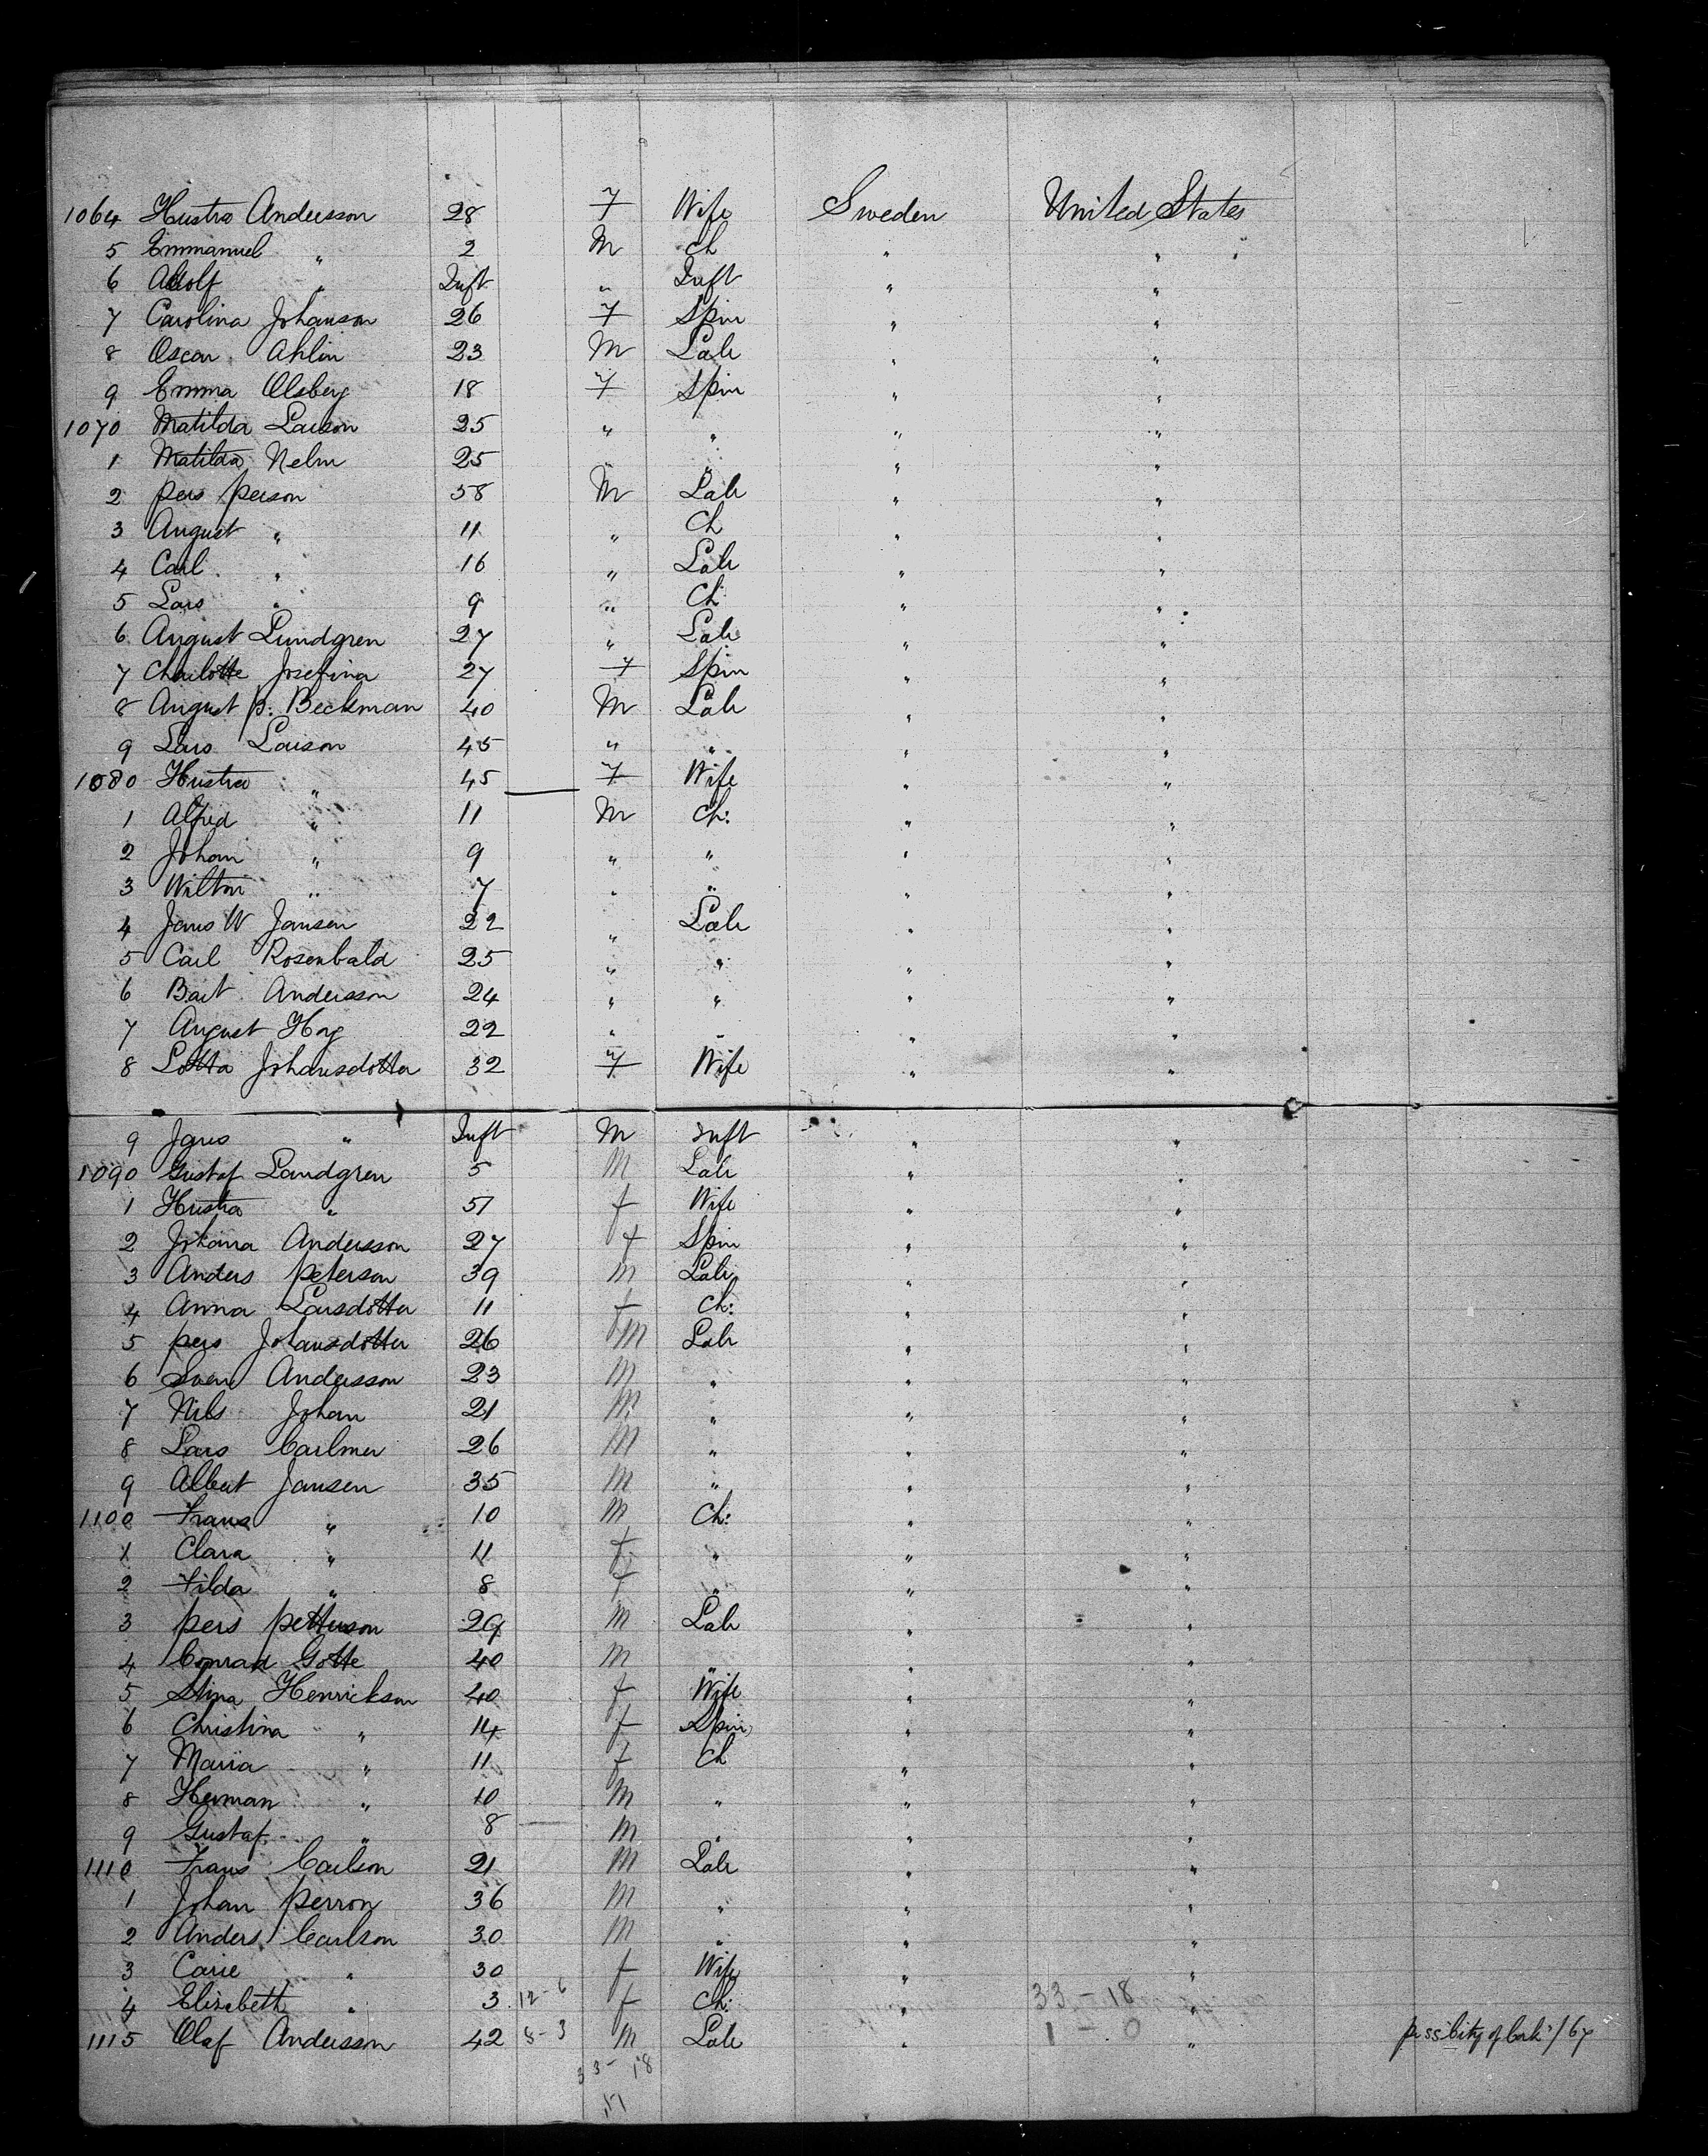 1064 Hustro Andersson 28 F Wife Sweden United States
5 Emmanuel " 2 M Ch " "
6 Adolf " Inft " Inft " "
7 Carolina Johanson 26 F Spin " "
8 Oscar Ahlin 23 M Lab " "
9 Emma Olsberg 18 F Spin " "
1070 Matilda Larson 25 " " " "
1 Matilda Nelm 25 " " " "
2 pers person 58 M Lab " "
3 August " 11 " Ch " "
4 Carl " 16 " Lab " "
5 Lars " 9 " Ch " "
6 August Lundgren 27 " Lab " "
7 Charlotte Josefina 27 F Spin " "
8 August p. Beckman 40 M Lab " "
9 Lars Larson 45 " " " "
1080 Hustro " 45 F Wife " "
1 Alfred " 11 M Ch: " "
2 Johan " 9 " " " "
3 Wilton " 7 " " " "
4 Jans W Jansen 22 " Lab " "
5 Carl Rosenbald 25 " " " "
6 Bart Andersson 24 " " " "
7 August Hog 22 " " " "
8 Lotta Johansdotter 32 F Wife " "
9 Jans " Inft M Inft " "
1090 Gustaf Landgren 5 M Lab " "
1 Hustro " 51 f Wife " "
2 Johana Andersson 27 f Spin " "
3 Anders peterson 39 M Lab " "
4 Anna Larsdotter 11 f Ch: " "
5 pers Johansdotter 26 M Lab " "
6 Sven Andersson 23 M " " "
7 Nils Johan 21 M " " "
8 Lars Carlmer 26 M " " "
9 Albert Jansen 35 M " " "
1100 Frans " 10 M Ch: " "
1 Clara " 11 f " " "
2 Filda " 8 f " " "
3 pers petterson 29 M Lab " "
4 Conrad Gotte 40 M " " "
5 Stina Henrickson 40 f Wife " "
6 Christina " 14 f Spin " "
7 Maria " 11 f Ch " "
8 Herman " 10 M " " "
9 Gustaf " 8 M " " "
1110 Frans Carlson 21 M Lab " "
1 Johan perron 36 M " " "
2 Anders Carlson 30 M " " "
3 Carie " 30 f Wife " "
4 Elizabeth " 3 12-6 f Ch: " 33-18 "
1115 Olaf Andersson 42 8-3 M Lab " 1-0 "
33-18